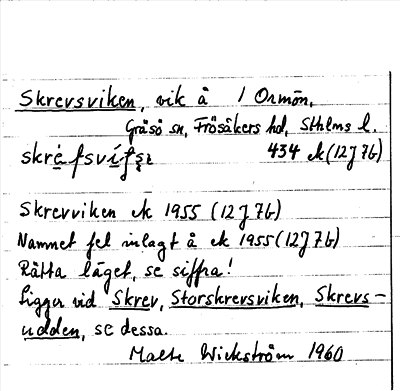 Skrevsviken, vik å / Ormön,
Gräsö sn, Frösåkers hd, Sthlms l.
skrè̱fsvíf 434 ek (12J7b)
Skrevviken ek 1955 (12J7b)
Namnet fel inlagt å ek 1955 (12J7b)
Rätta läget, se siffra!
Ligger vid Skrev, Storskrevsviken, Skrevs-
udden, se dessa.
Malte Wickström 1960